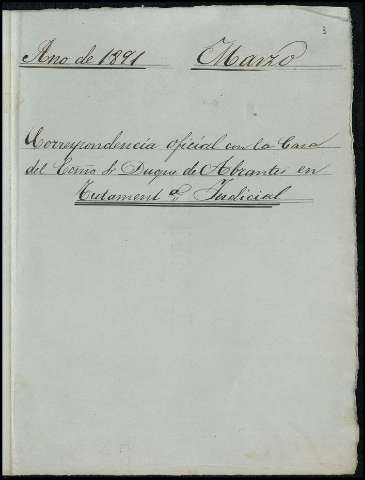 3
Año de 1891 Marzo
Correspondencia oficial con la Casa
del Exmo Sr Duque de Abrantes en
Testament.ª Judicial